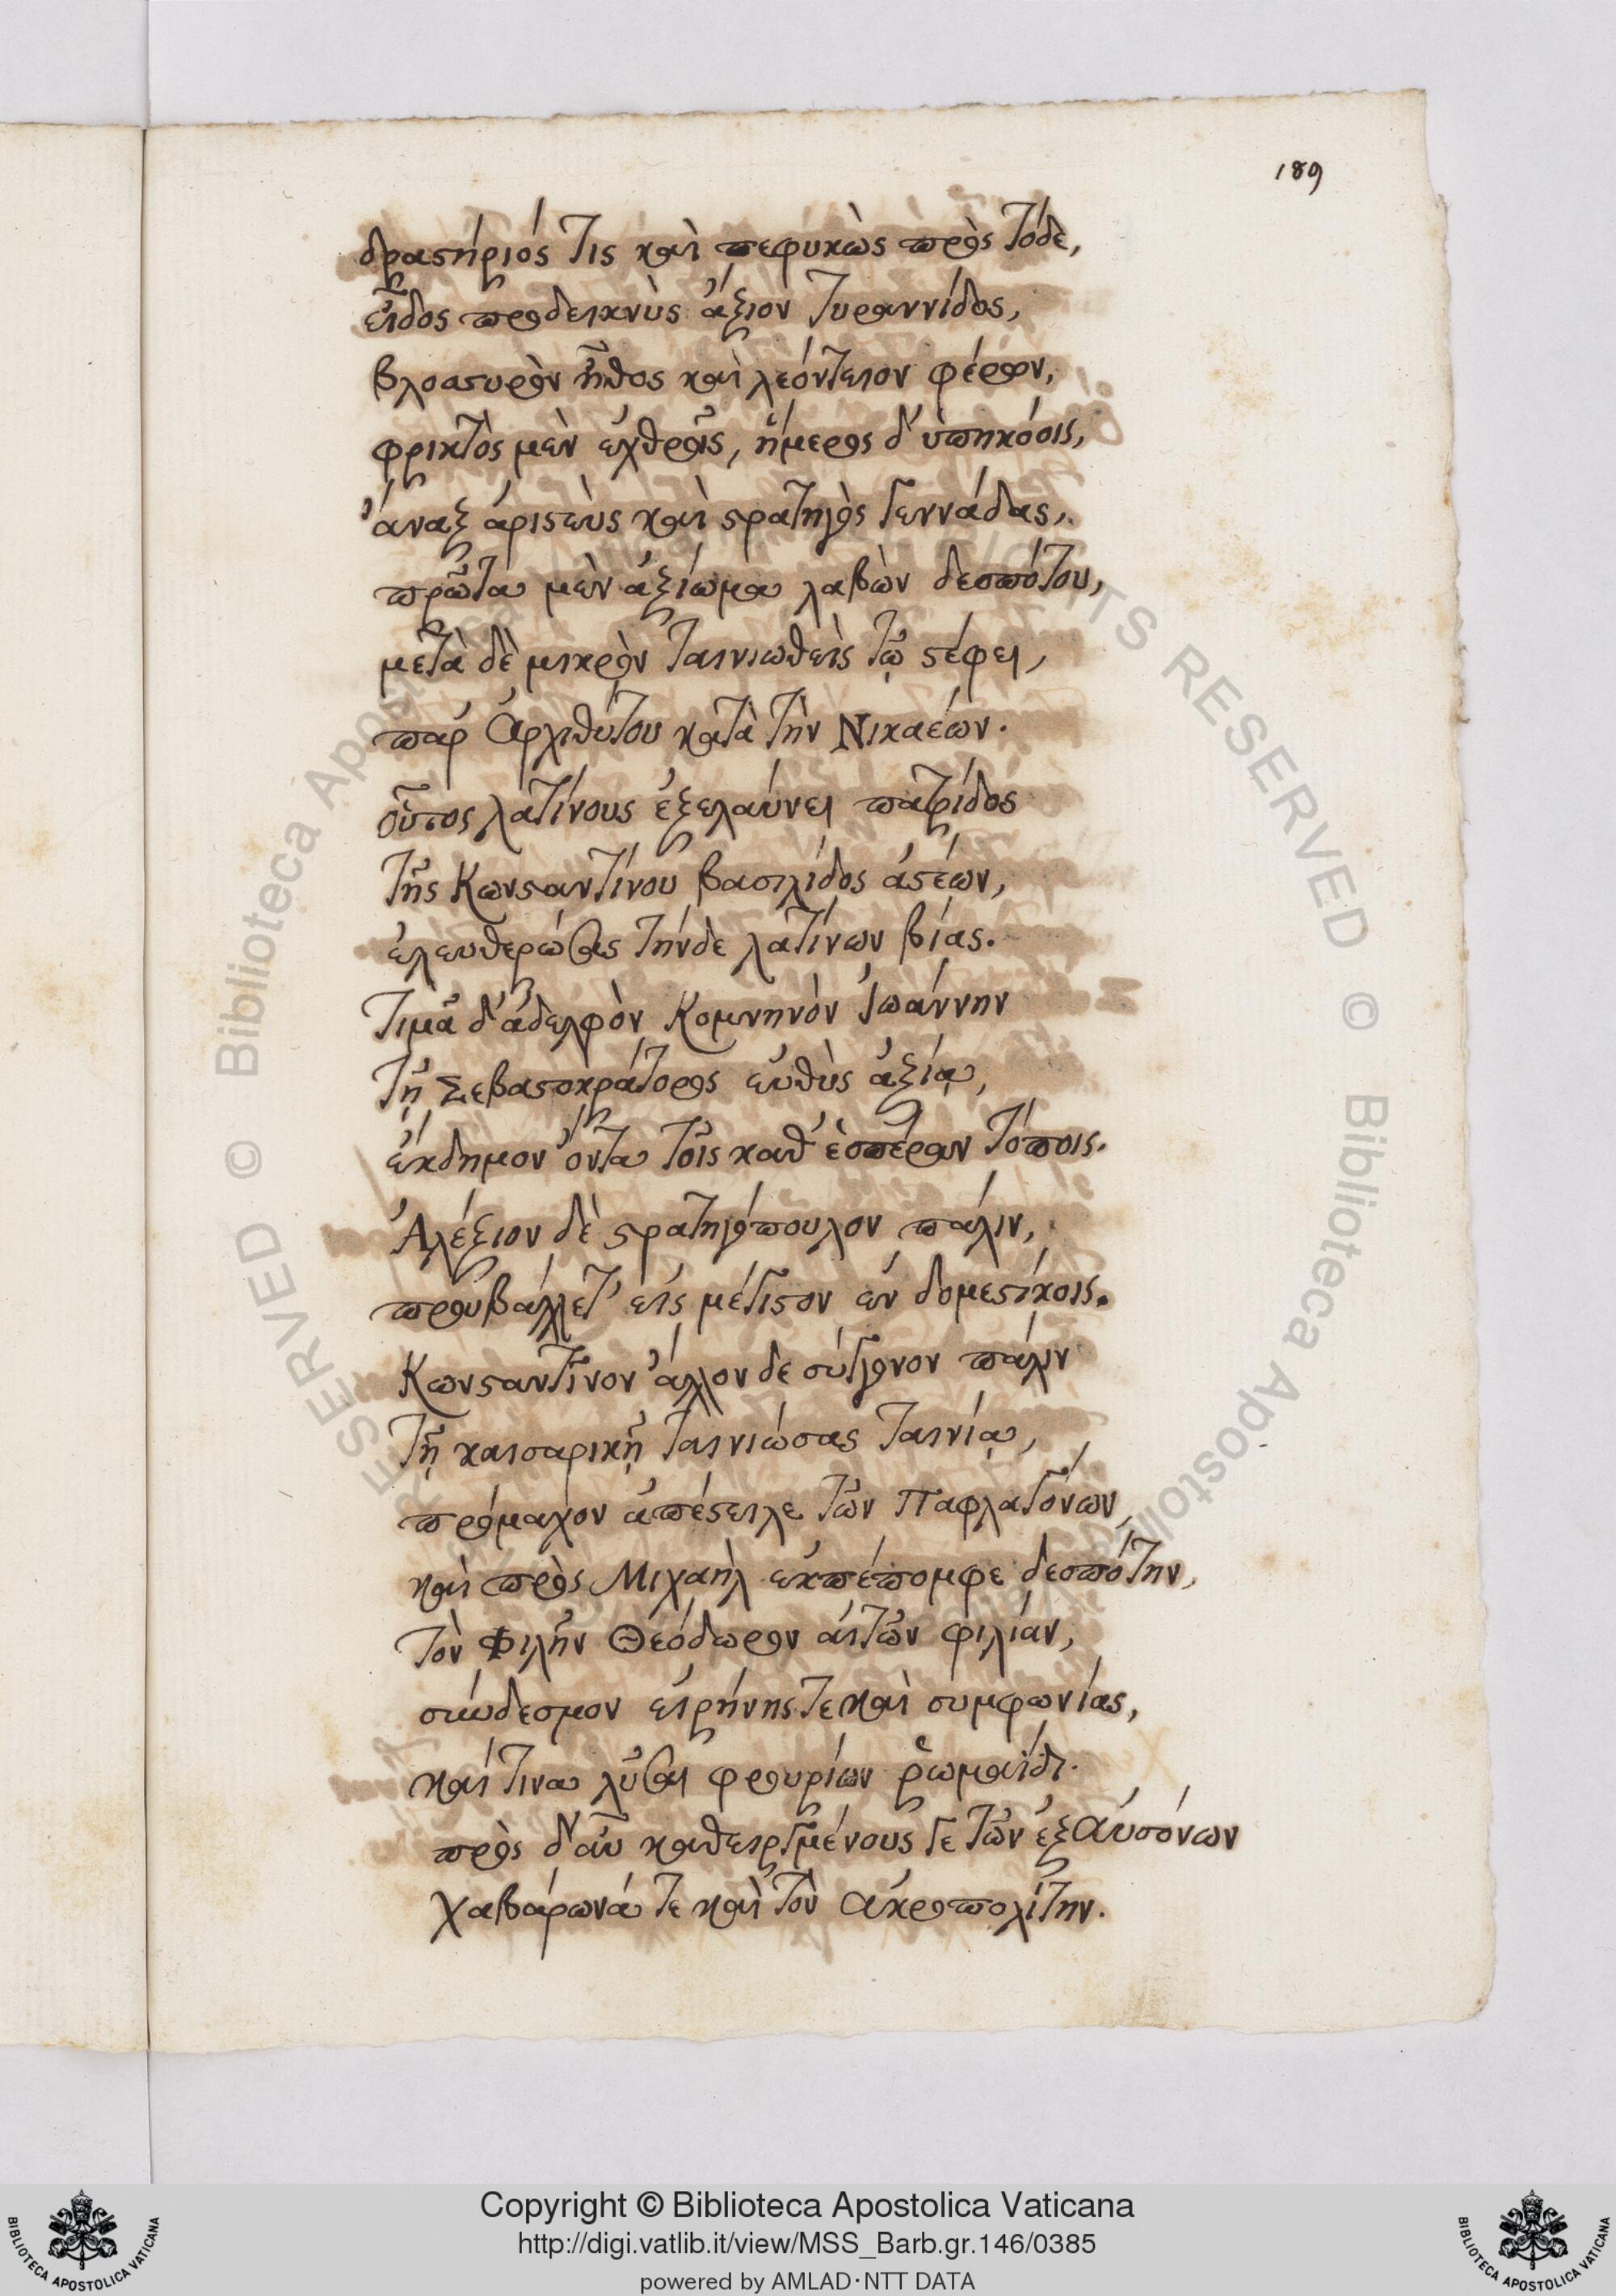 189
δραστήριός τις καὶ πεφυκὼς πρὸς τόδε,
εἶδος προδεικνὺς ἄξιον τυραννίδος,
βλοσυρὸν ἦθος καὶ λεόντειον φέρων,
φρικτὸς μὲν ἐχθροῖς, ἥμερος δ' ὑπηκόοις,
ἄναξ ἀριστεὺς καὶ στρατηγὸς γεννάδας,
πρῶτα μὲν ἀξίωμα λαβὼν δεσπότου,
μετὰ δὲ μικρὸν ταινιωθεὶς τῷ στέφει,
παρ' ἀρχιθύτου κατὰ τὴν Νικαέων.
οὗτος λατίνους ἐξελαύνει πατρίδος
τῆς Κωνσταντίνου βασιλίδος ἀστέων,
ἐλευθερώσας τήνδε λατίνων βίας.
τιμᾷ δ' ἀδελφὸν Κομνηνὸν Ἰωάννην
τῇ Σεβαστοκράτορος εὐθὺς ἀξίᾳ,
ἔκδημον ὄντα τοῖς καθ' ἑσπέραν τόποις.
Ἀλέξιον δὲ στρατηγόπουλον πάλιν,
προυβάλλετ' εἰς μέγιστον ἐν δομεστίκοις.
Κωνσταντῖνον ἄλλον δε σύγγονον πάλιν
τῇ καισαρικῇ ταινιώσας ταινίᾳ,
πρόμαχον ἀπέστειλε τῶν Παφλαγόνων,
καὶ πρὸς Μιχαὴλ ἐκπέπομφε δεσπότην,
τὸν Φιλῆν Θεόδωρον αἰτῶν φιλίαν,
σύνδεσμον εἰρήνης τε καὶ συμφωνίας,
καί τινα λῦσαι φρουρίων ῥωμαΐδι.
πρὸς δ' αὖ καθειργμένους γε τῶν ἐξ Αὐσόνων
Χαβάρωνά τε καὶ τὸν ἀκροπολίτην.
Copyright © Biblioteca Apostolica Vaticana
http://digi.vatlib.it/view/MSS_Barb.gr.146/0385
powered by AMLAD·NTT DATA